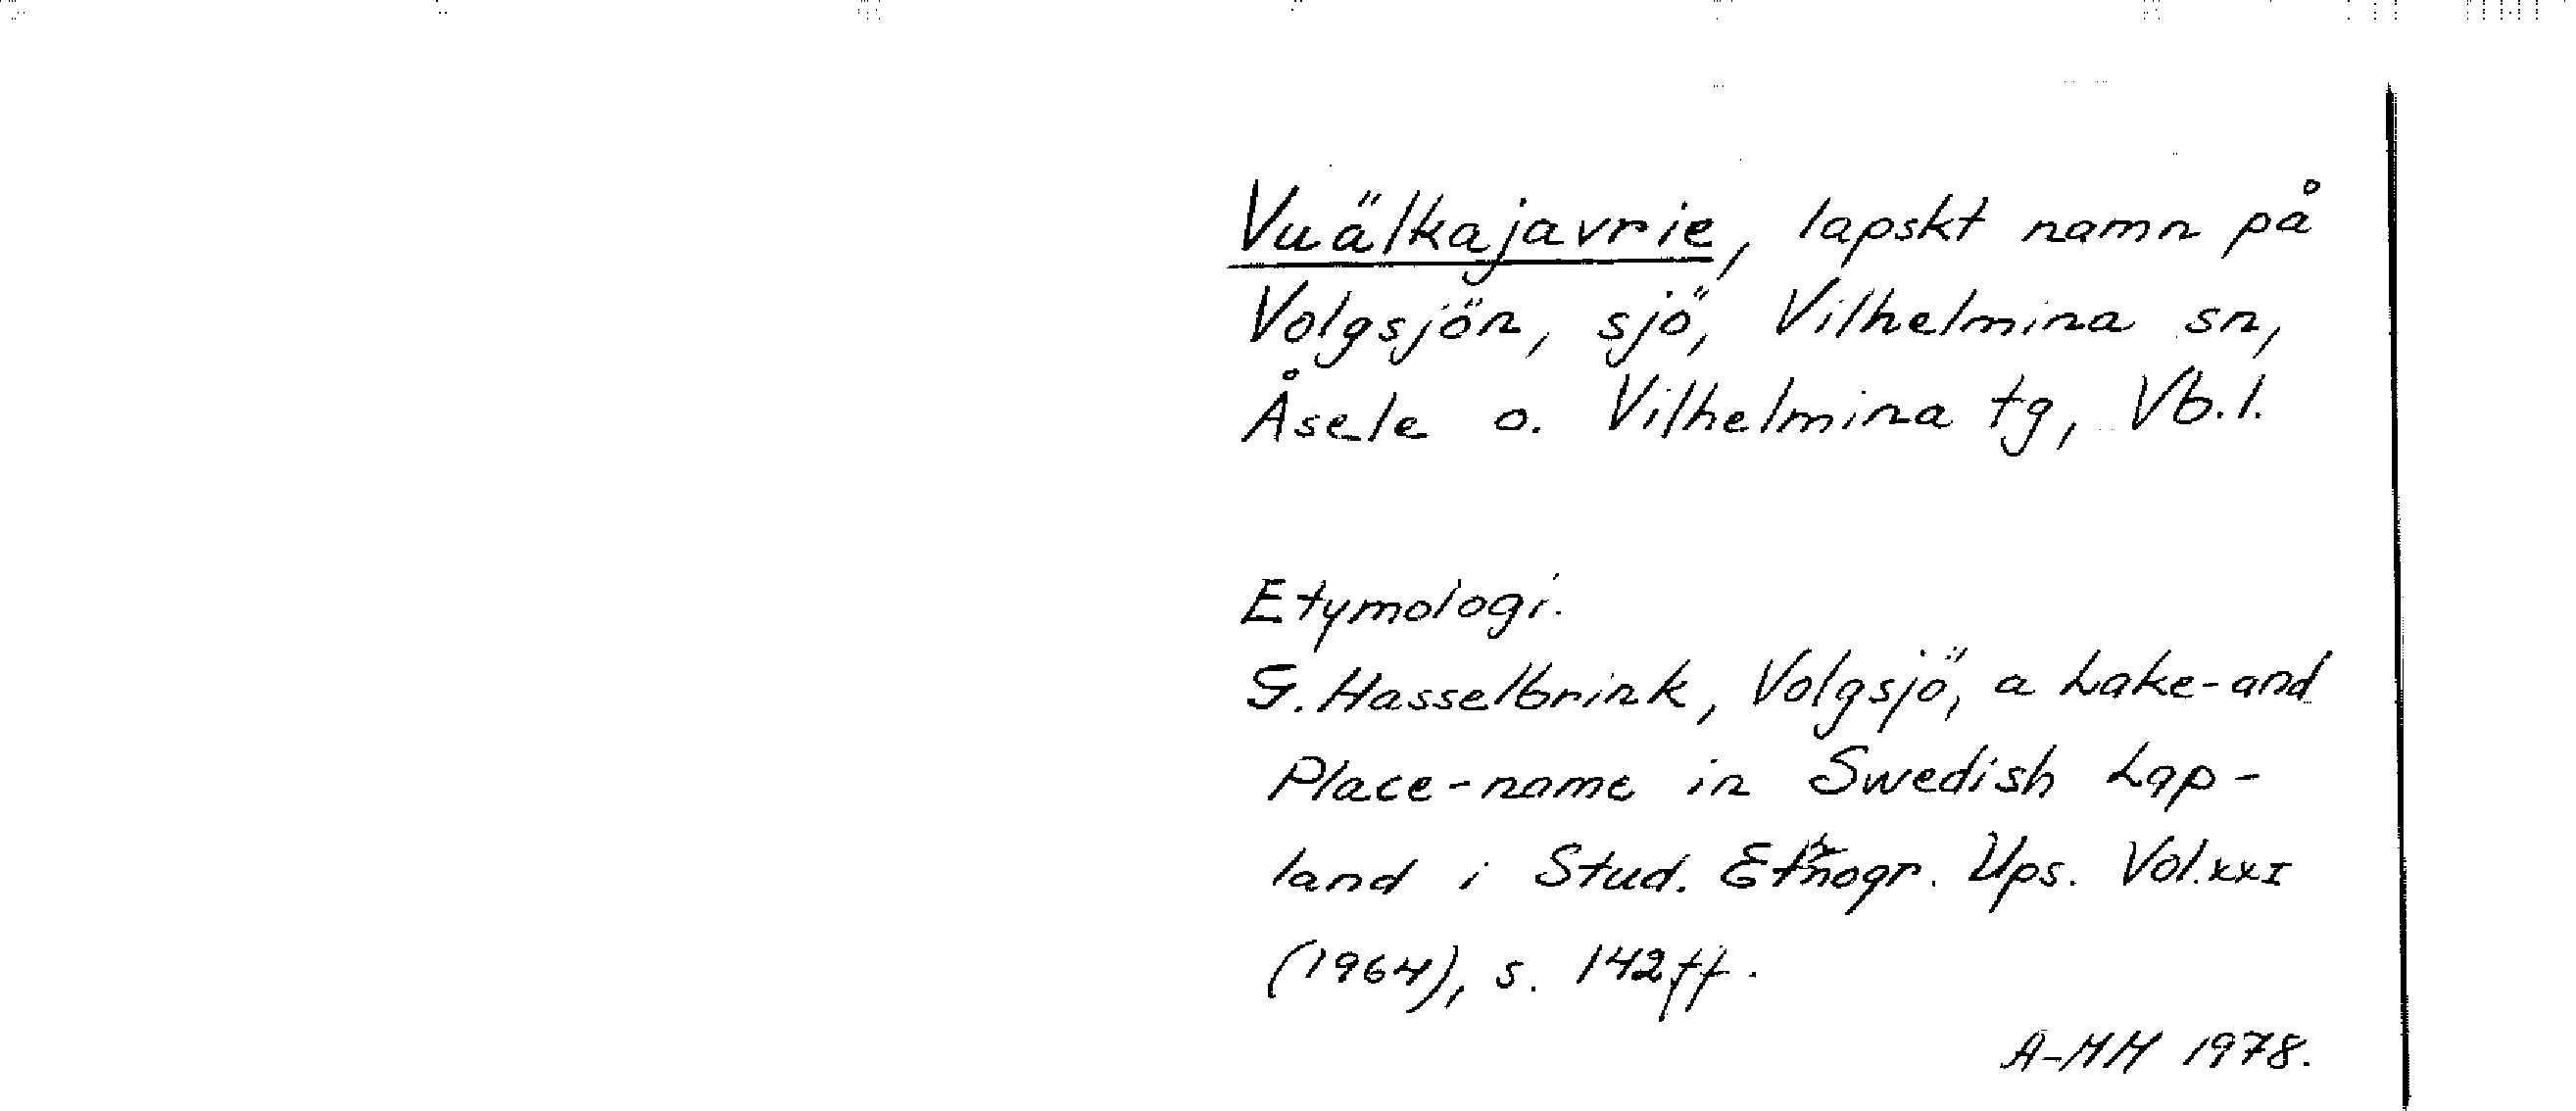 Vuälkajavrie, lapskt namn på
Volgsjön, sjö, Vilhelmina sn,
Åsele o. Vilhelmina tg, Vb.l.
Etymologi.
G. Hasselbrink, Volgsjö, a Lake-and
Place-name in Swedish Lap-
land i Stud. Ethnogr. Ups. Vol. XXI
(1964), s. 142ff.
A-MM 1978.